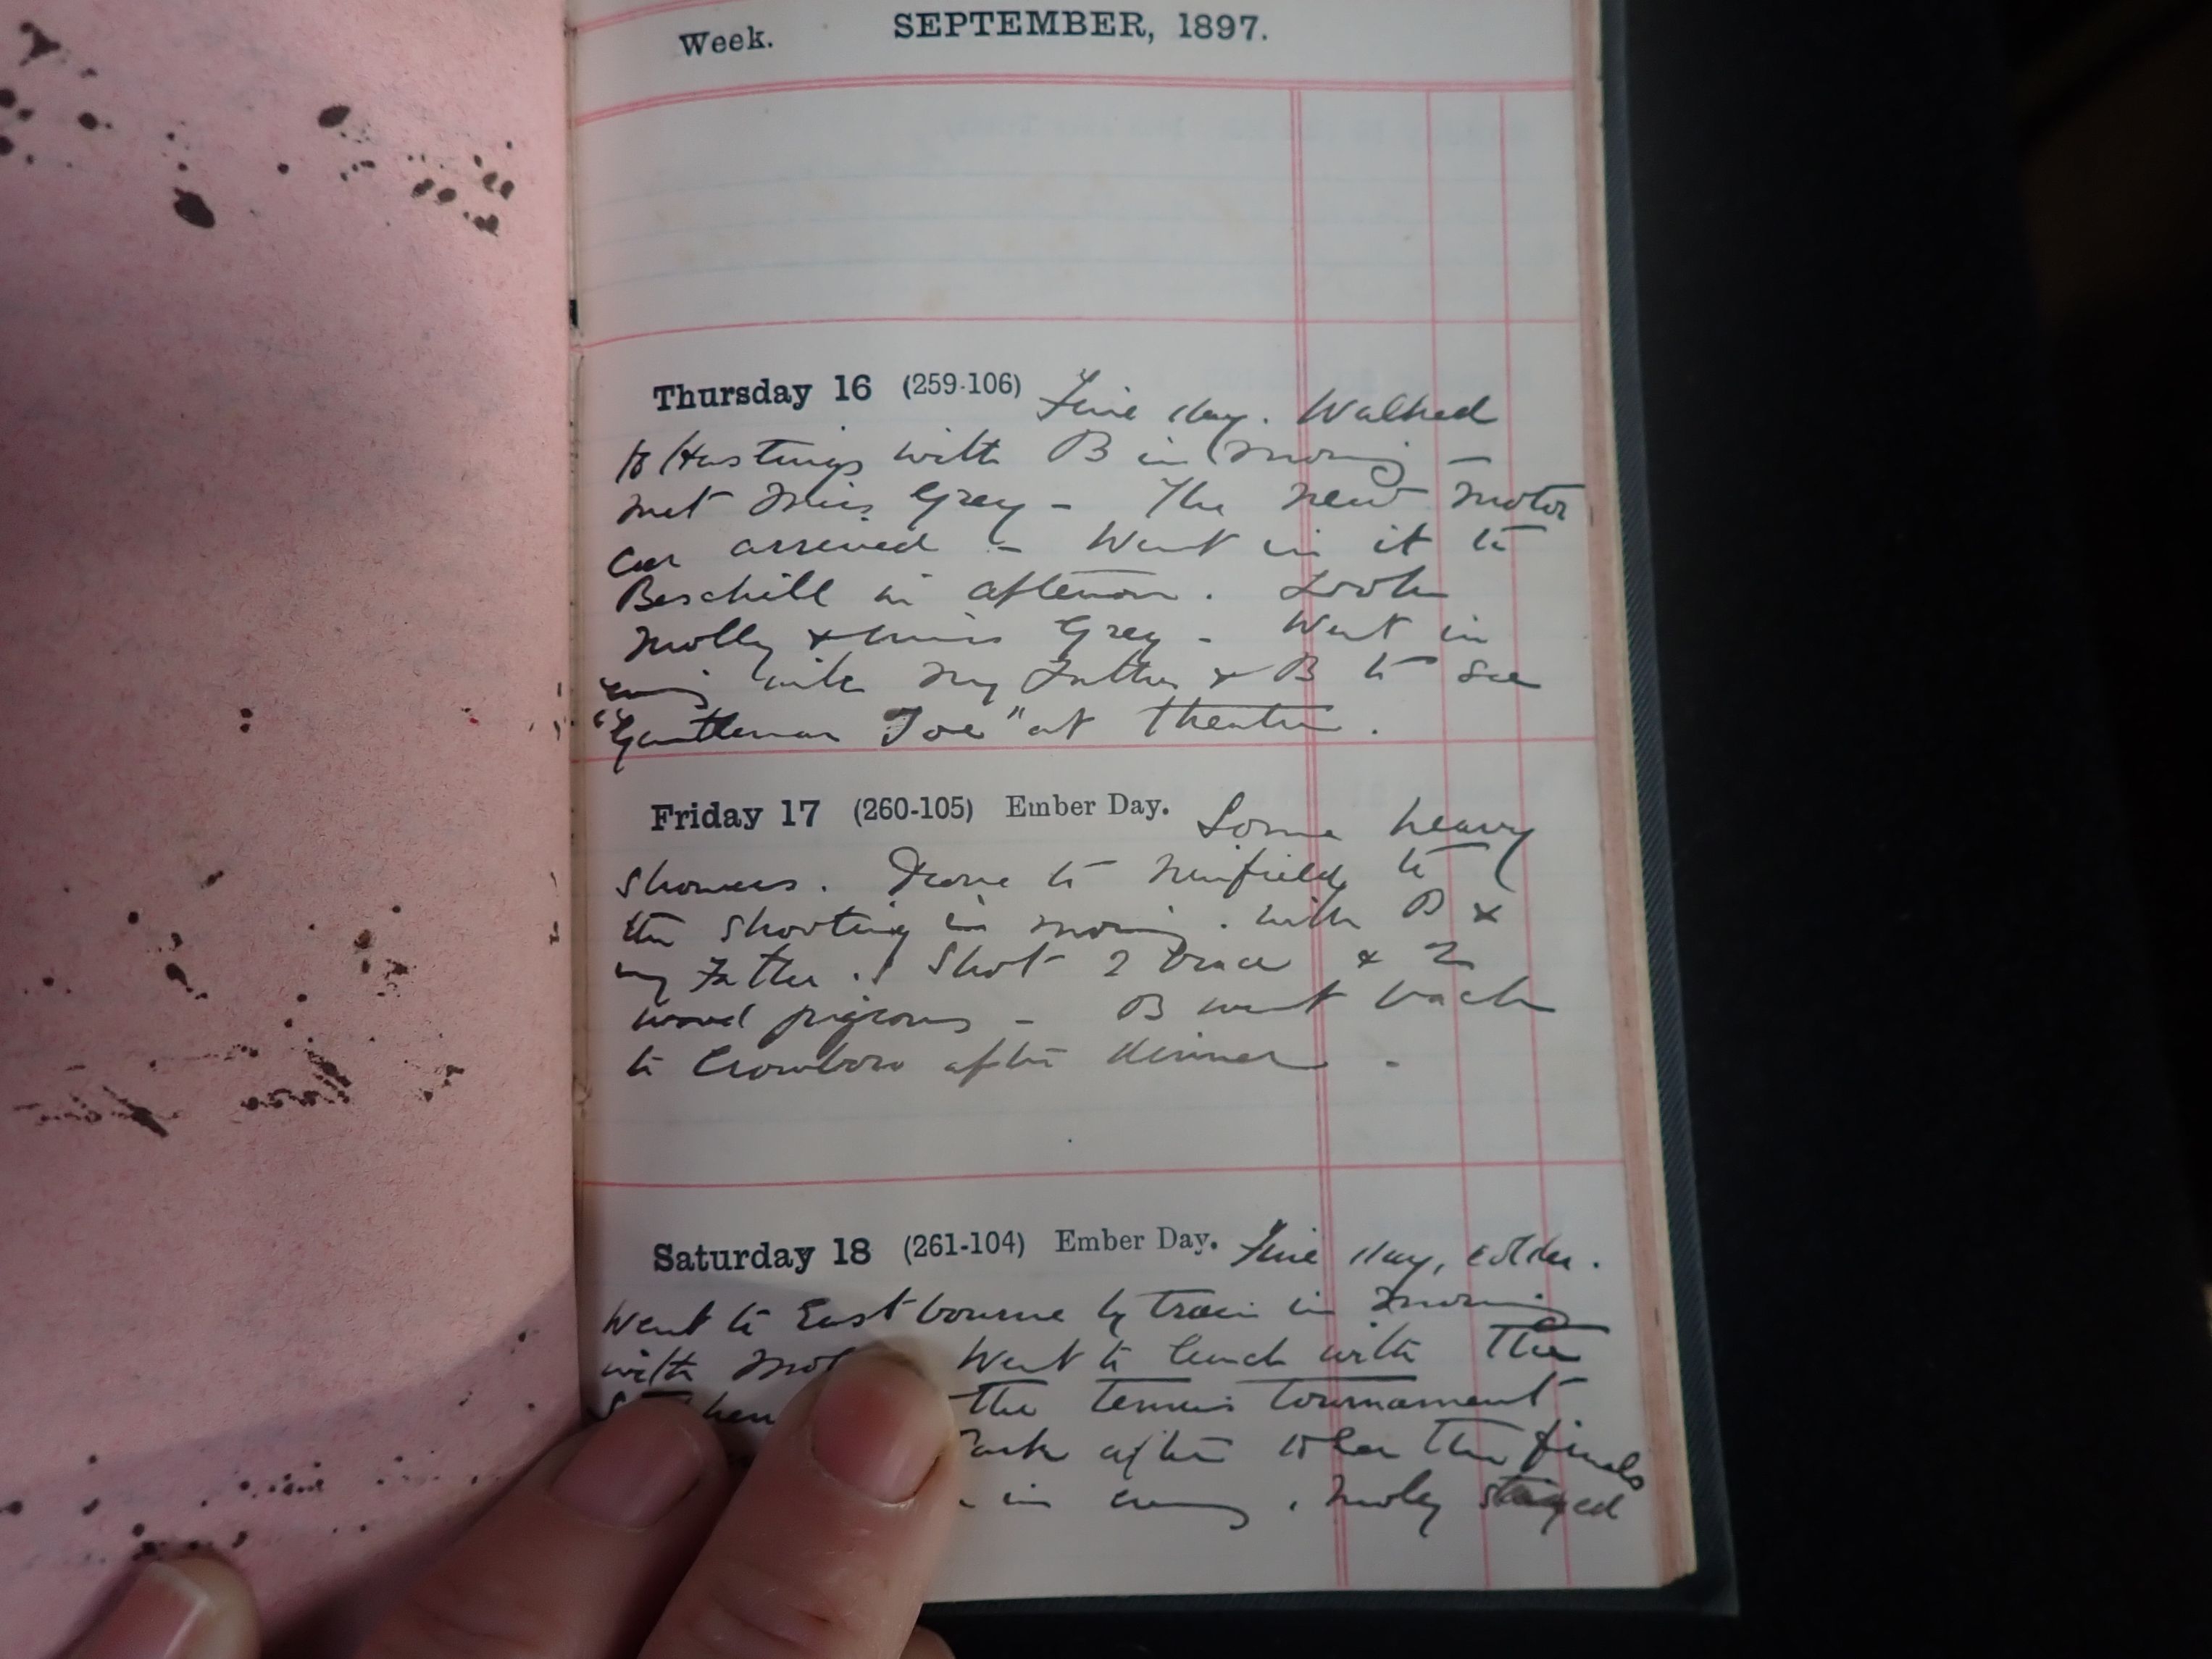 Week. SEPTEMBER, 1897.
Thursday 16 (259-106) Fine day. Walked
to Hastings with B in morning –
met Miss Grey – The new motor
car arrived – Went in it to
Bexhill in afternoon. Took
Molly & Miss Grey – Went in
evening with my Father & B to see
"Gentleman Joe" at theatre.
Friday 17 (260-105) Ember Day. Some heavy
showers. Drove to Ninfield to
the shooting in morning. with B &
my Father. Shot 2 brace & 2
wood pigeons – B went back
to Crowboro after dinner –
Saturday 18 (261-104) Ember Day. Fine day, colder.
Went to Eastbourne by train in morning
with Went to lunch with the
the tennis tournament
after the finals
in evening. Molly stayed